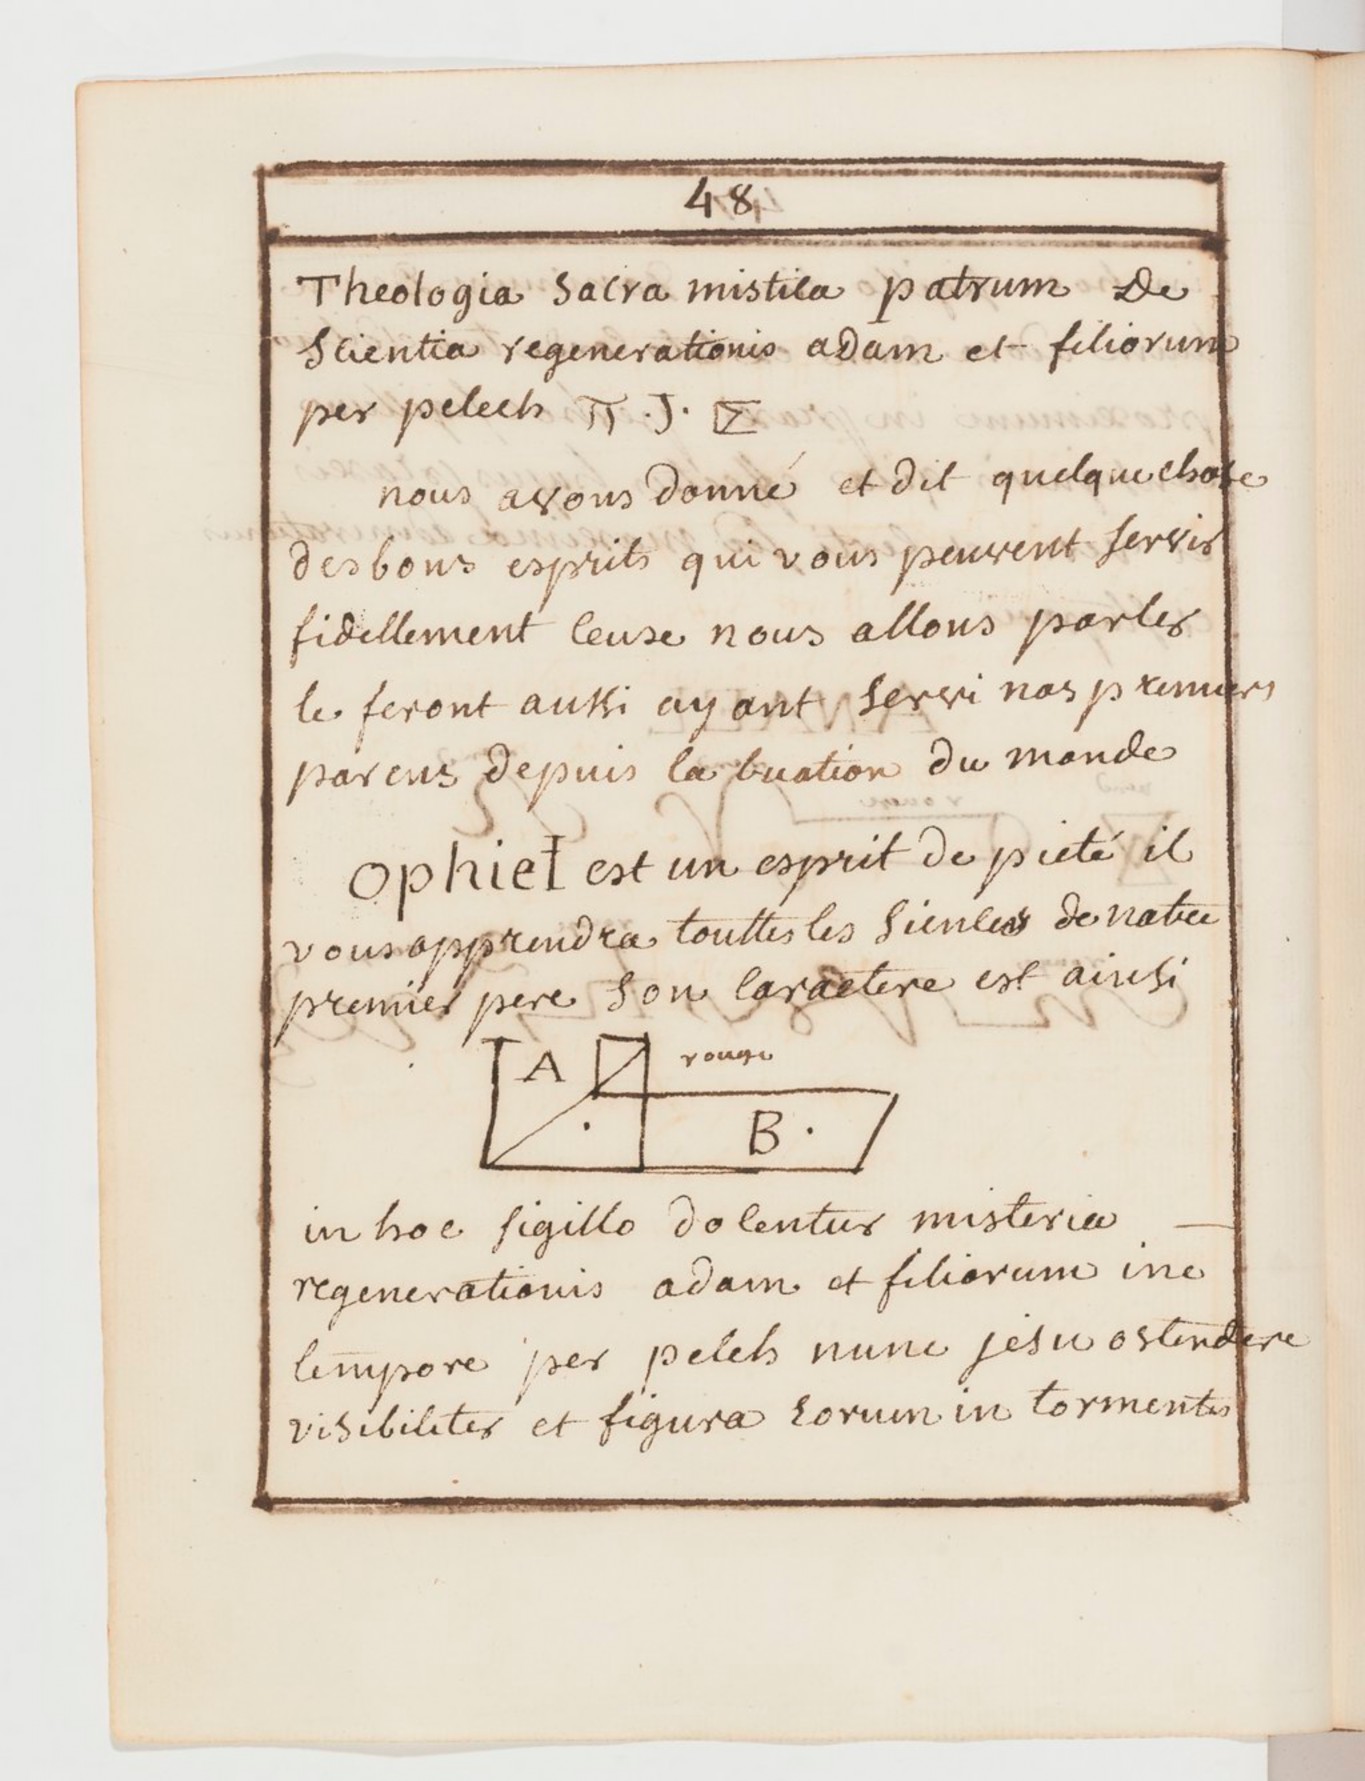 48
Theologia Sacra mistica patrum De
Scientia regenerationis adam et filiorum
per pelech π . J . Σ
nous avons donné et dit quelque chose
des bons esprits qui vous peuvent servir
fidellement ceuxe nous allons parler
le feront aussi ayant servi nos premiers
parens depuis la cuation du monde
Ophiel est un esprit de pieté il
vous apprendra touttes les siences de natue
premier pere son caractere est ainsi
A rouge
B .
in hoc sigillo docentur misteria
regenerationis adam et filiorum in e
tempore per pelech nunc jesu ostendere
visibiliter et figura eorum in tormentis